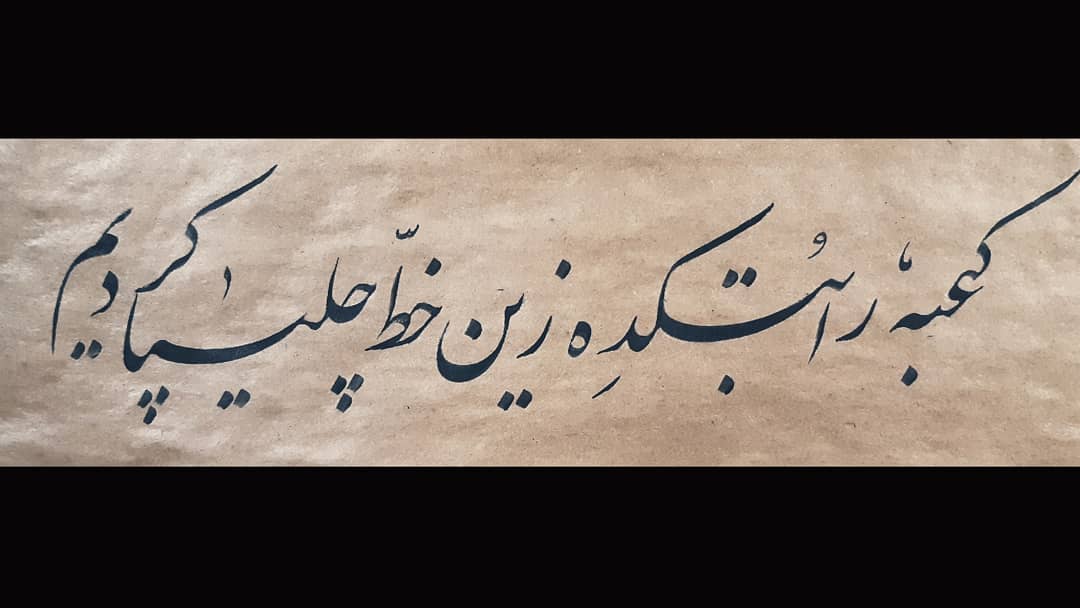 کعبه را بُتکدهِ زین خطّ چلیپا کردیم